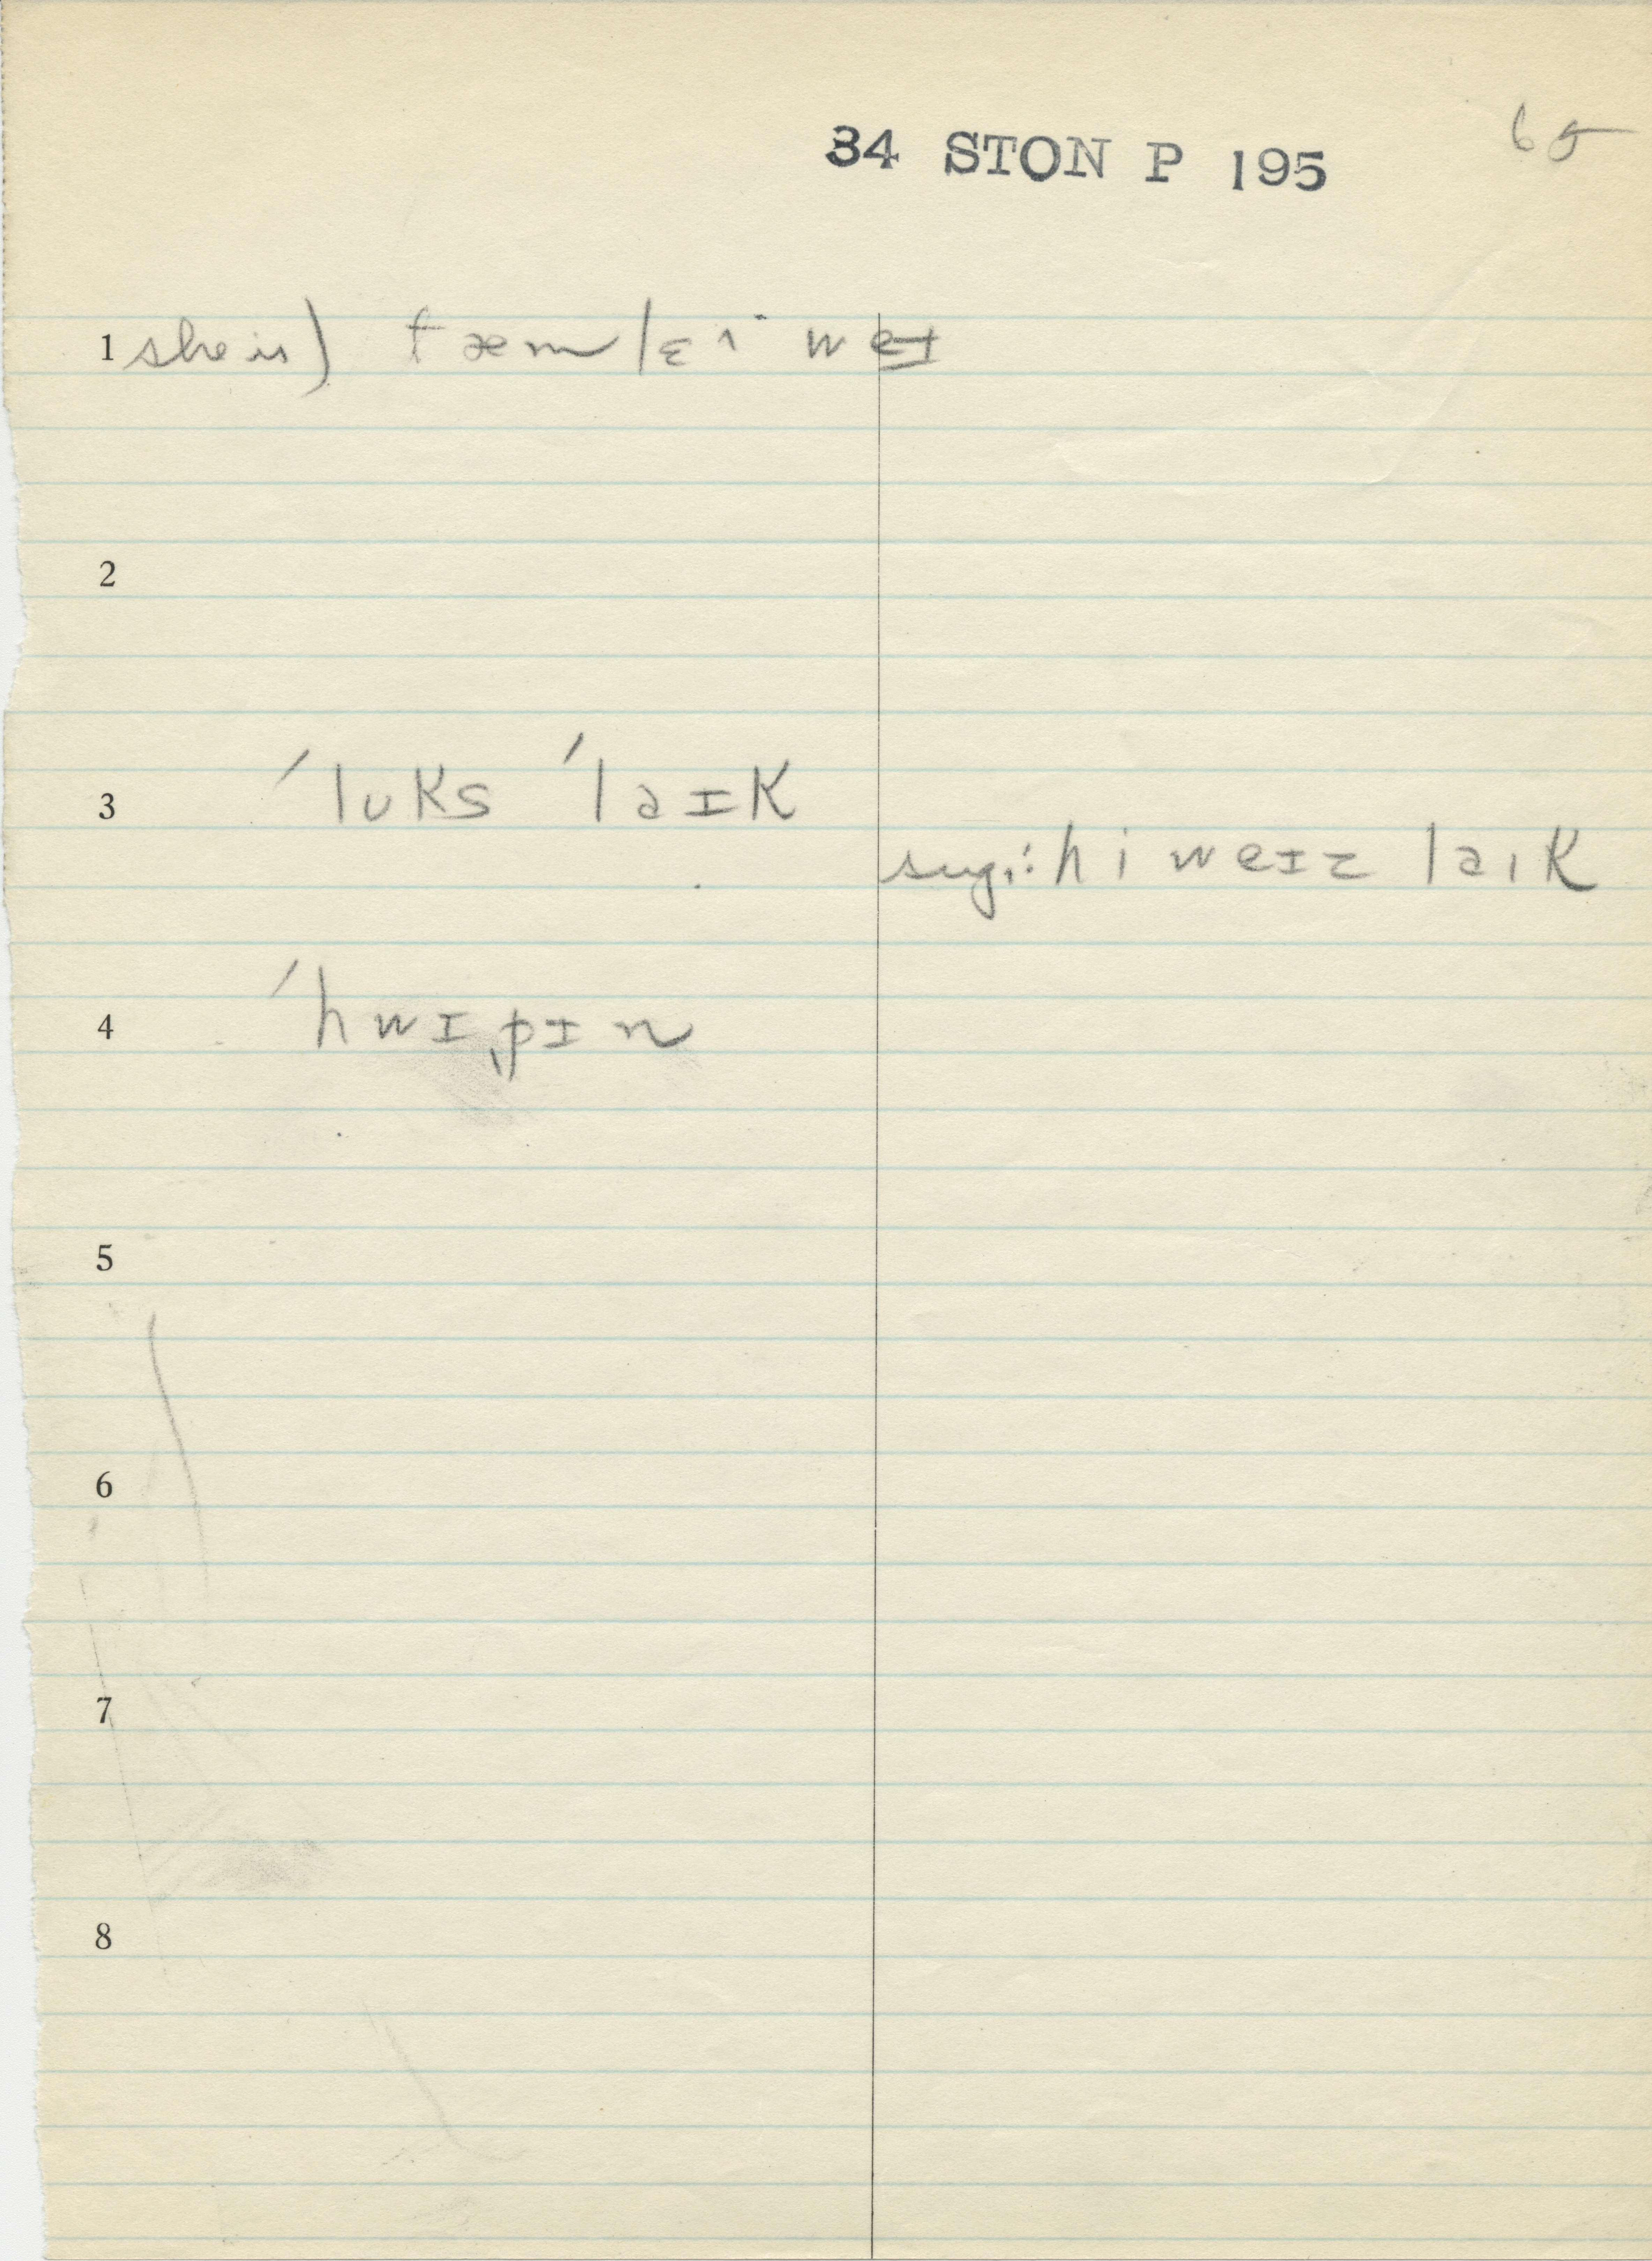 65
34 STON P 195
1 she is)
2
3 ˈlʊks ˈlaɪk
sug.: hi weɪz laɪk
4 ˈhwɪˌpɪn
5
6
7
8